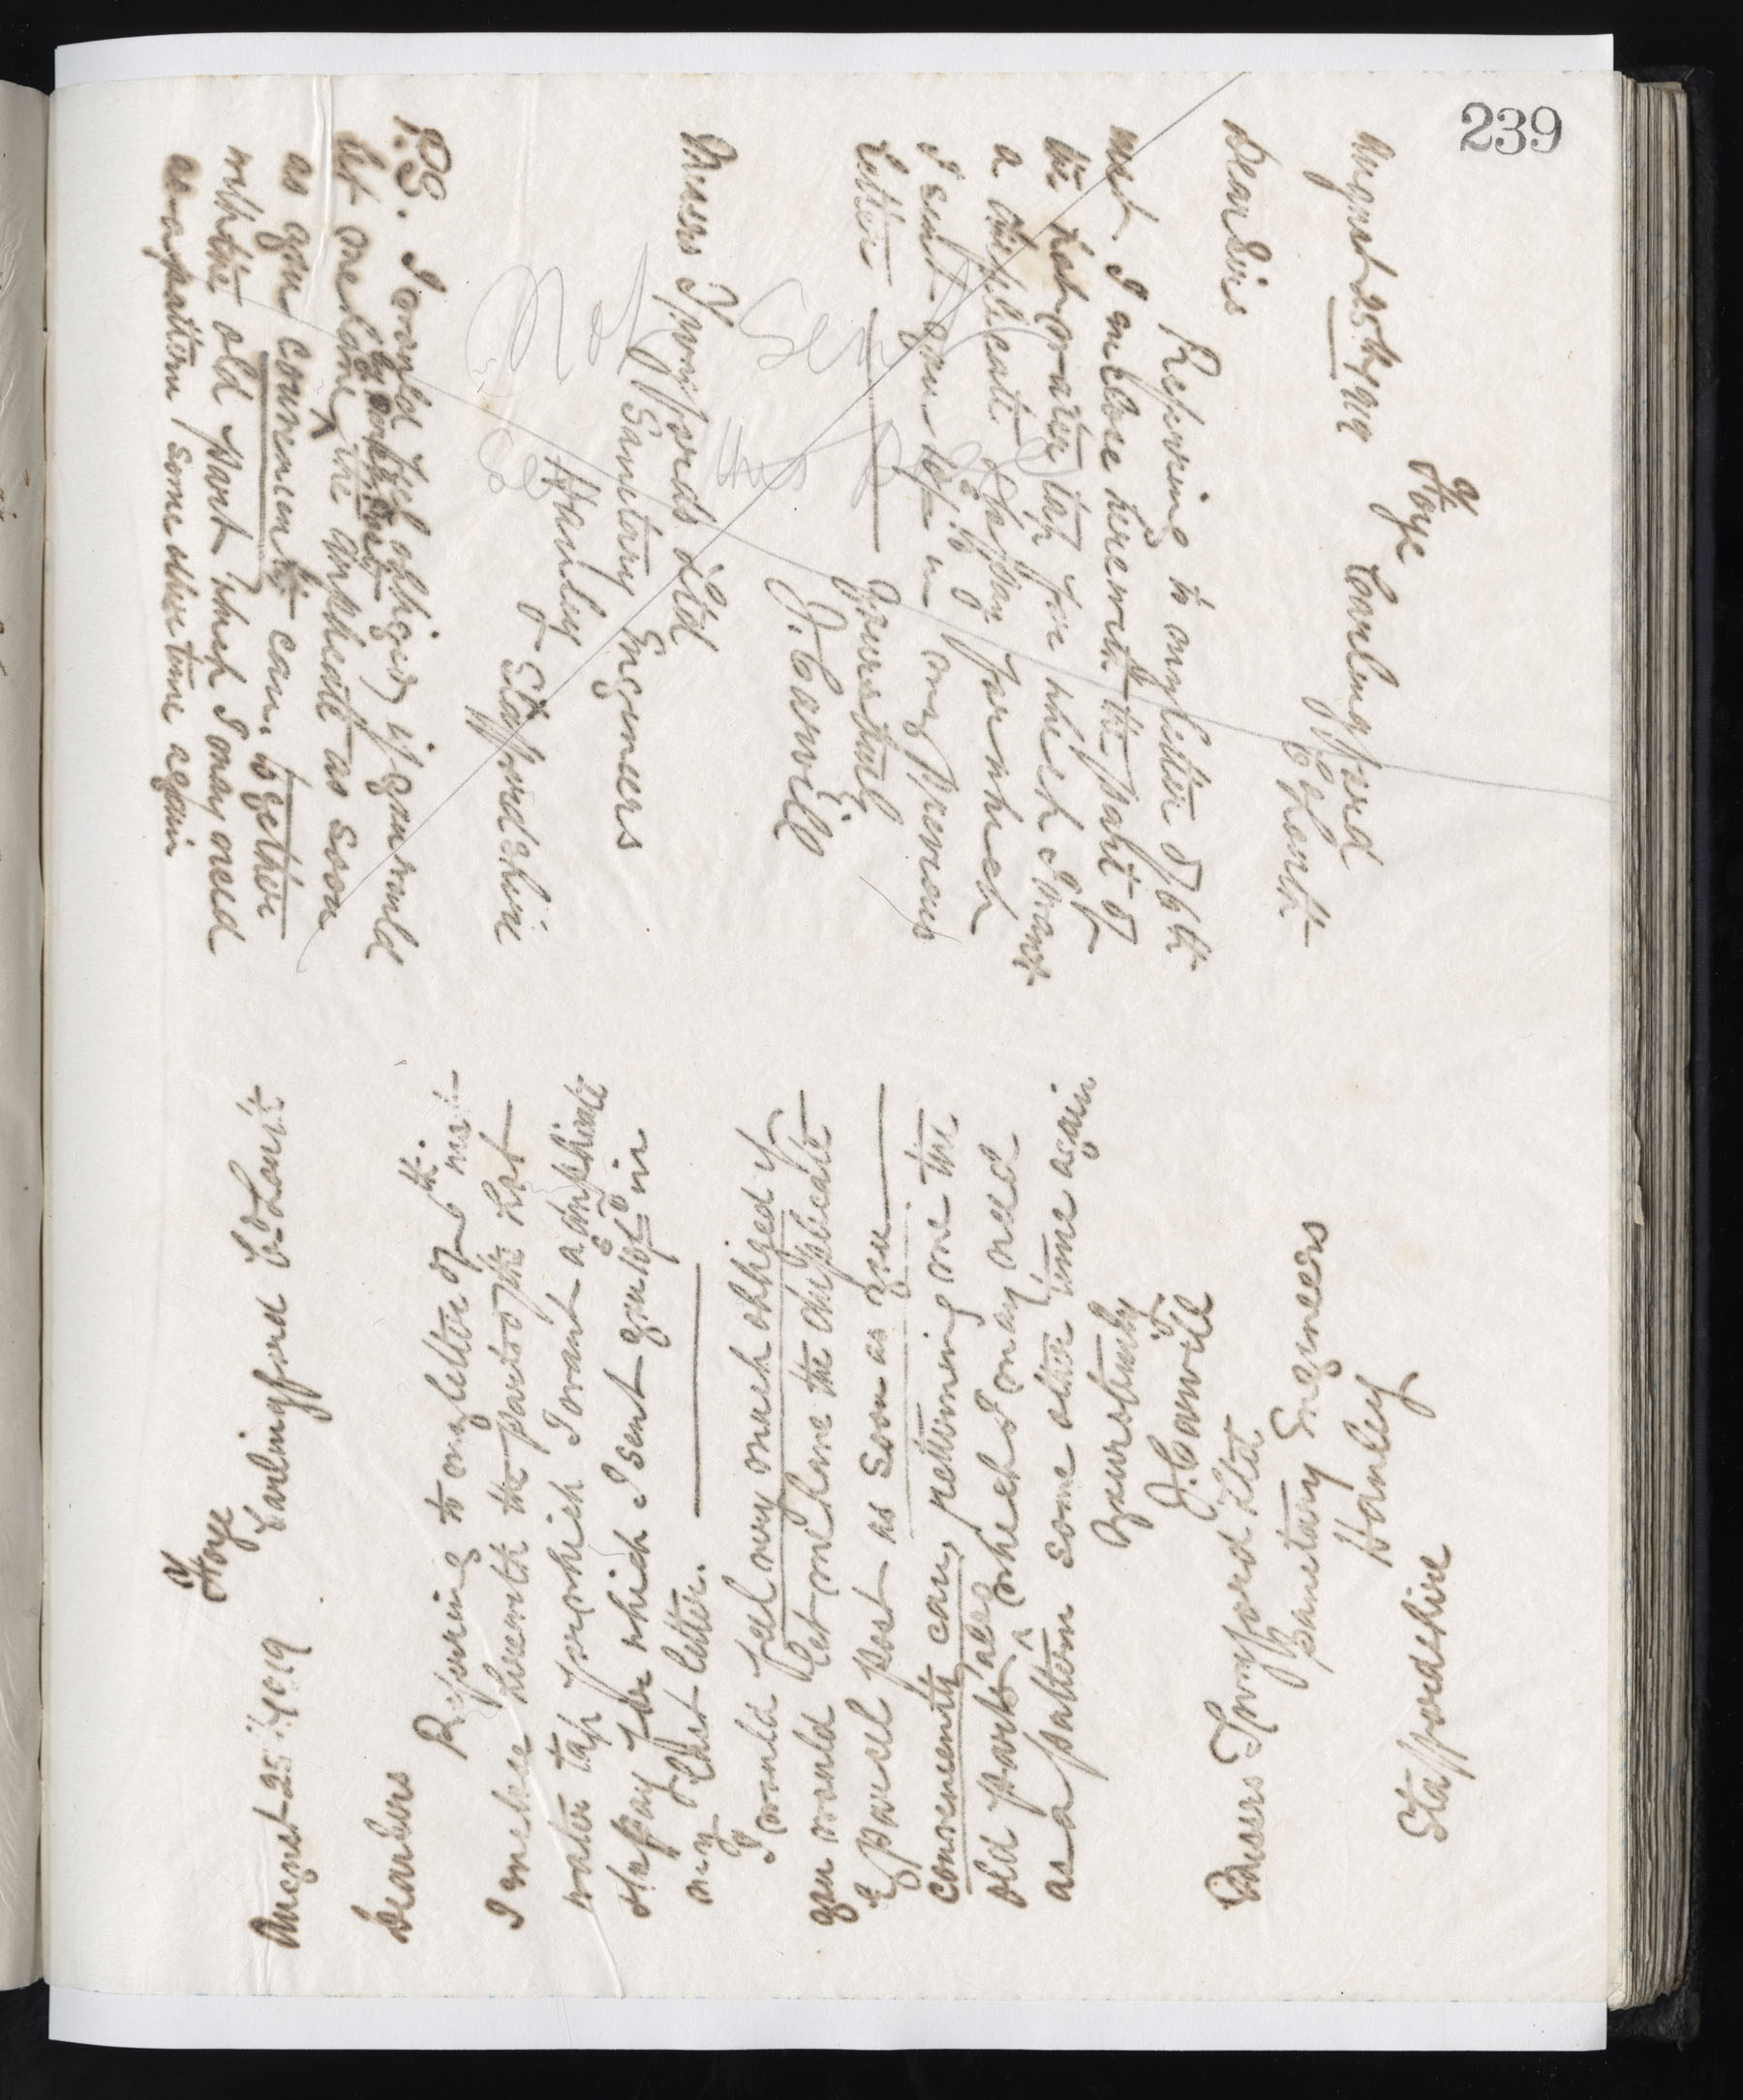 239
Foye
Carlingford
Co Louth
August 25th 1919
Dear Sirs
Refering to my letter of 6th
inst. I enclose herewith the part of
the hot water tap for which I want
a duplicate & to pay for which
I sent you 10/- in my previous
letter
Yours truly
J. Carvill
Messrs Twyfords Ltd
Sanitary Engineers
Hanley
Staffordshire
P.S. I would feel obliged if you would
let me have the duplicate as soon
by parcel post
as you conveniently can, together
with the old part which I may need
as a pattern some other time again
Not Used
Foye
Carlingford Co Louth
August 25th 1919
Dear Sirs
Refering to my letter of 6th inst
I enclose herewith the part of the hot
water tap for which I want a duplicate
& to pay for which I sent you 10/- in
my last letter.
I would feel very much obliged if
you would let me have the duplicate
by parcel post as soon as you
conveniently can, returning me the
old part also which I may need
as a pattern some other time again
Yours truly
J. Carvill
Messrs Twyford Ltd
Sanitary Engineers
Hanley
Staffordshire